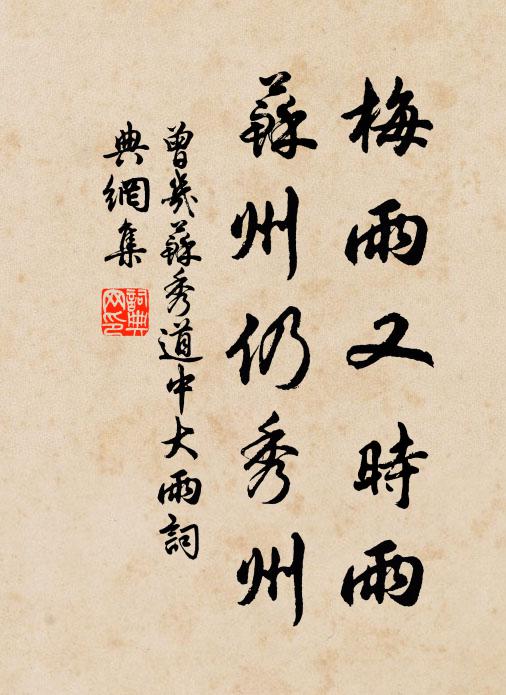 梅雨又時雨
蘇州仍秀州
曾幾蘇秀道中大雨詞
典網集
詞典
网印